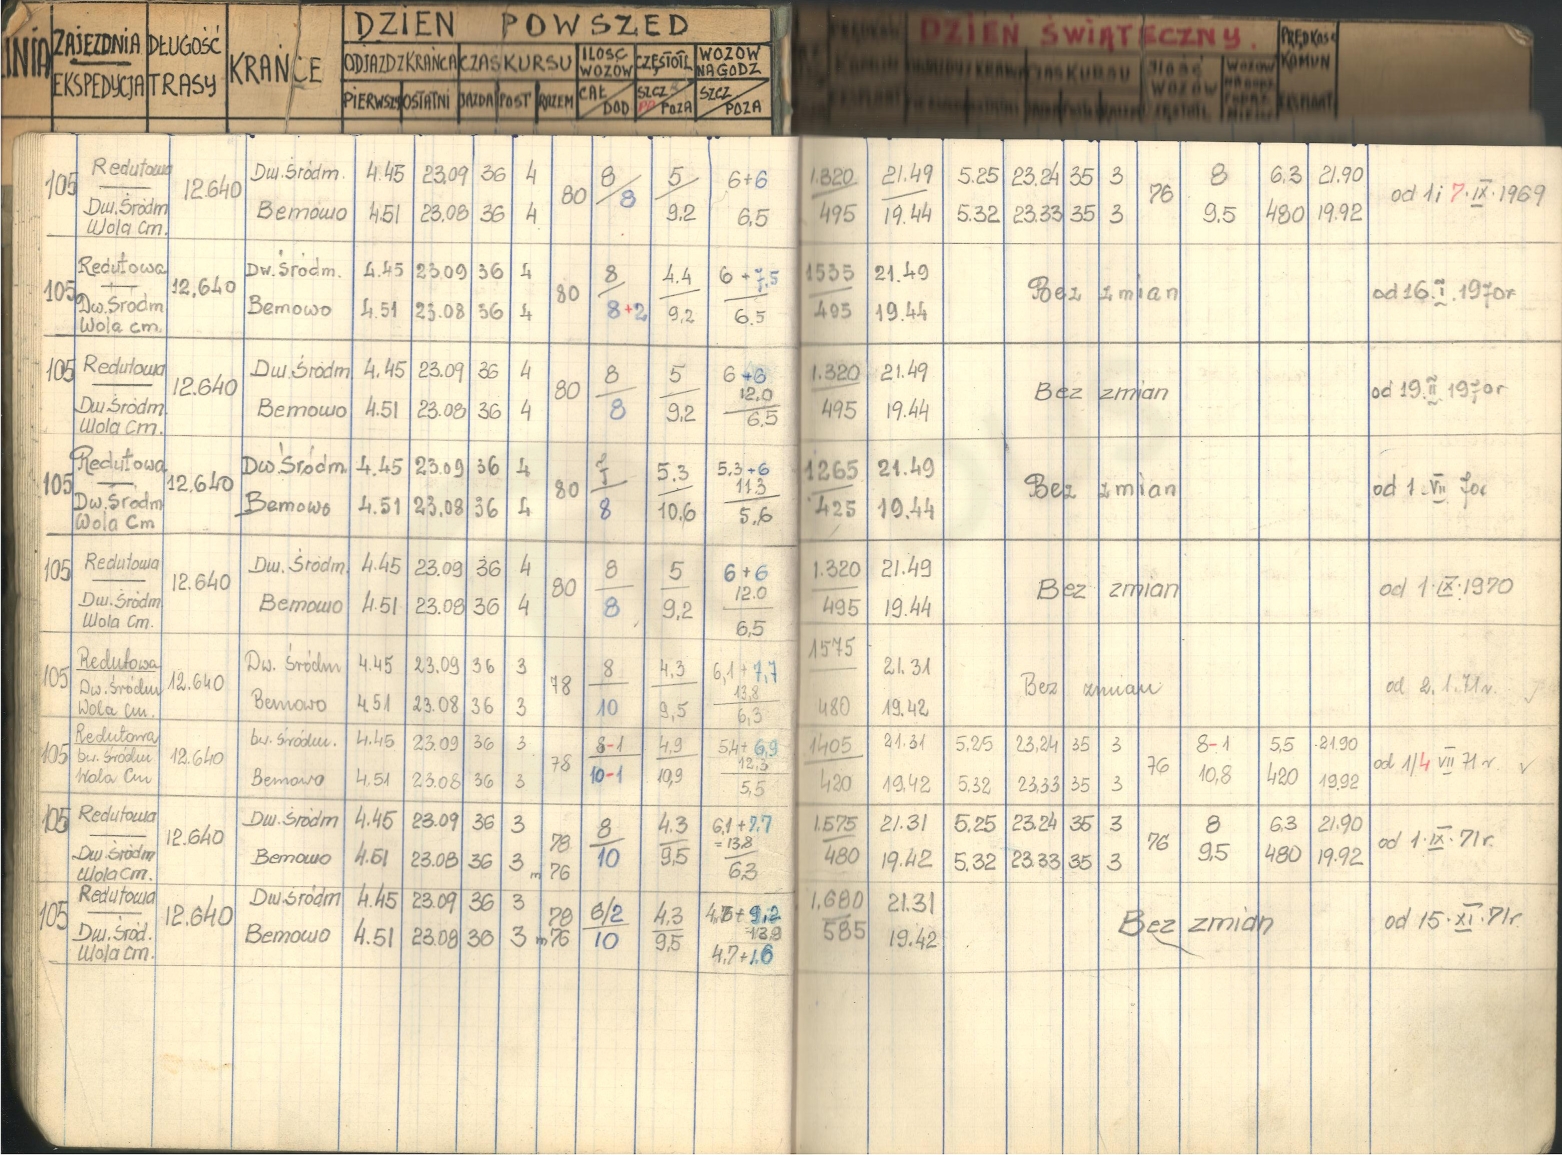 DZIEŃ POWSZED
DZIEŃ ŚWIĄTECZNY.
LINIA ZAJEZDNIA DŁUGOŚĆ KRAŃCE ODJAZD Z KRAŃCA CZAS KURSU ILOŚĆ WOZÓW CZĘSTOTL. WOZÓW NA GODZ
EKSPEDYCJA TRASY PIERWSZY OSTATNI JAZDA POST RAZEM CAŁ DOD SZCZ POZA SZCZ POZA
105 Redutowa 12.640 Dw.Śródm. 4.45 23.09 36 4 80 8 5 6+6 1.320 21.49 5.25 23.24 35 3 76 8 6,3 21.90 od 1 i 7.IX.1969
Dw.Śródm Bemowo 4.51 23.08 36 4 8 9.2 6,5 495 19.44 5.32 23.33 35 3 9,5 480 19.92
Wola Cm.
105 Redutowa 12,640 Dw.Śródm. 4.45 23.09 36 4 80 8 4.4 6+7,5 1535 21.49 Bez zmian od 16.I.1970r
Dw.Śródm Bemowo 4.51 23.08 36 4 8+2 9,2 6.5 495 19.44
Wola Cm.
105 Redutowa 12.640 Dw.Śródm 4.45 23.09 36 4 80 8 5 6+6 1.320 21.49 Bez zmian od 19.II.1970r
12,0
Dw.Śródm Bemowo 4.51 23.08 36 4 8 9.2 6.5 495 19.44
Wola Cm.
105 Redutowa 12.640 Dw.Śródm 4.45 23.09 36 4 80 5.3 5,3+6 1265 21.49 Bez zmian od 1.VII 70r
11.3
Dw.Śródm Bemowo 4.51 23.08 36 4 8 10,6 5,6 425 19.44
Wola Cm
105 Redutowa 12.640 Dw.Śródm. 4.45 23.09 36 4 80 8 5 6+6 1.320 21.49 Bez zmian od 1.IX.1970
12.0
Dw.Śródm Bemowo 4.51 23.08 36 4 8 9,2 6,5 495 19.44
Wola Cm.
105 Redutowa 12.640 Dw. Śródm 4.45 23.09 36 3 78 8 4,3 6,1+7,7 1575 21.31 Bez zmian od 2.1.71r.
13,8
Dw.Śródm Bemowo 4.51 23.08 36 3 10 9,5 6,3 480 19.42
Wola Cm.
105 Redutowa 12.640 Dw. Śródm. 4.45 23.09 36 3 78 8-1 4,9 5,4+6,9 1405 21.31 5,25 23,24 35 3 76 8-1 5,5 21.90 od 1/4 VII 71r.
12,3
Dw. Śródm Bemowo 4.51 23.08 36 3 10-1 10,9 5,5 420 19,42 5.32 23.33 35 3 10,8 420 19,92
Wola Cm
105 Redutowa 12.640 Dw.Śródm 4.45 23.09 36 3 78 8 4.3 6,1+7.7 1.575 21.31 5,25 23.24 35 3 76 8 6,3 21.90 od 1.IX.71r.
=13,8
Dw.Śródm Bemowo 4.51 23.08 36 3 m 76 10 9,5 6,3 480 19.42 5.32 23.33 35 3 9,5 480 19.92
Wola Cm.
105 Redutowa 12.640 Dw.Śródm 4.45 23.09 36 3 78 6/2 4.3 9,2 1,680 21.31 Bez zmian od 15.XI.71r.
13,9
Dw.Śród. Bemowo 4.51 23.08 36 3 m 76 10 9,5 4,7+1.6 585 19.42
Wola Cm.